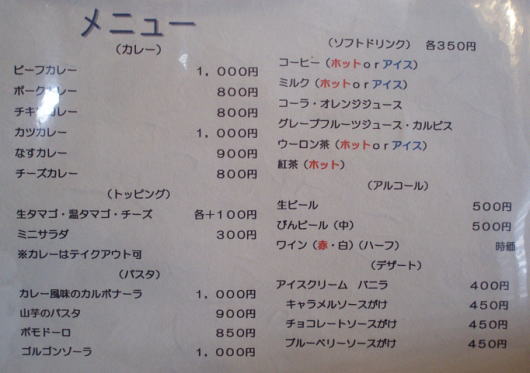 メニュー
（カレー）
ビーフカレー 1，000円
ポークカレー 800円
チキンカレー 800円
カツカレー 1，000円
なすカレー 900円
チーズカレー 800円
（トッピング）
生タマゴ・温タマゴ・チーズ 各＋100円
ミニサラダ 300円
※カレーはテイクアウト可
（パスタ）
カレー風味のカルボナーラ 1，000円
山芋のパスタ 900円
ポモドーロ 850円
ゴルゴンゾーラ 1，000円
（ソフトドリンク） 各350円
コーヒー（ホットorアイス）
ミルク（ホットorアイス）
コーラ・オレンジジュース
グレープフルーツジュース・カルピス
ウーロン茶（ホットorアイス）
紅茶（ホット）
（アルコール）
生ビール 500円
びんビール（中） 500円
ワイン（赤・白）（ハーフ） 時価
（デザート）
アイスクリーム バニラ 400円
キャラメルソースがけ 450円
チョコレートソースがけ 450円
ブルーベリーソースがけ 450円